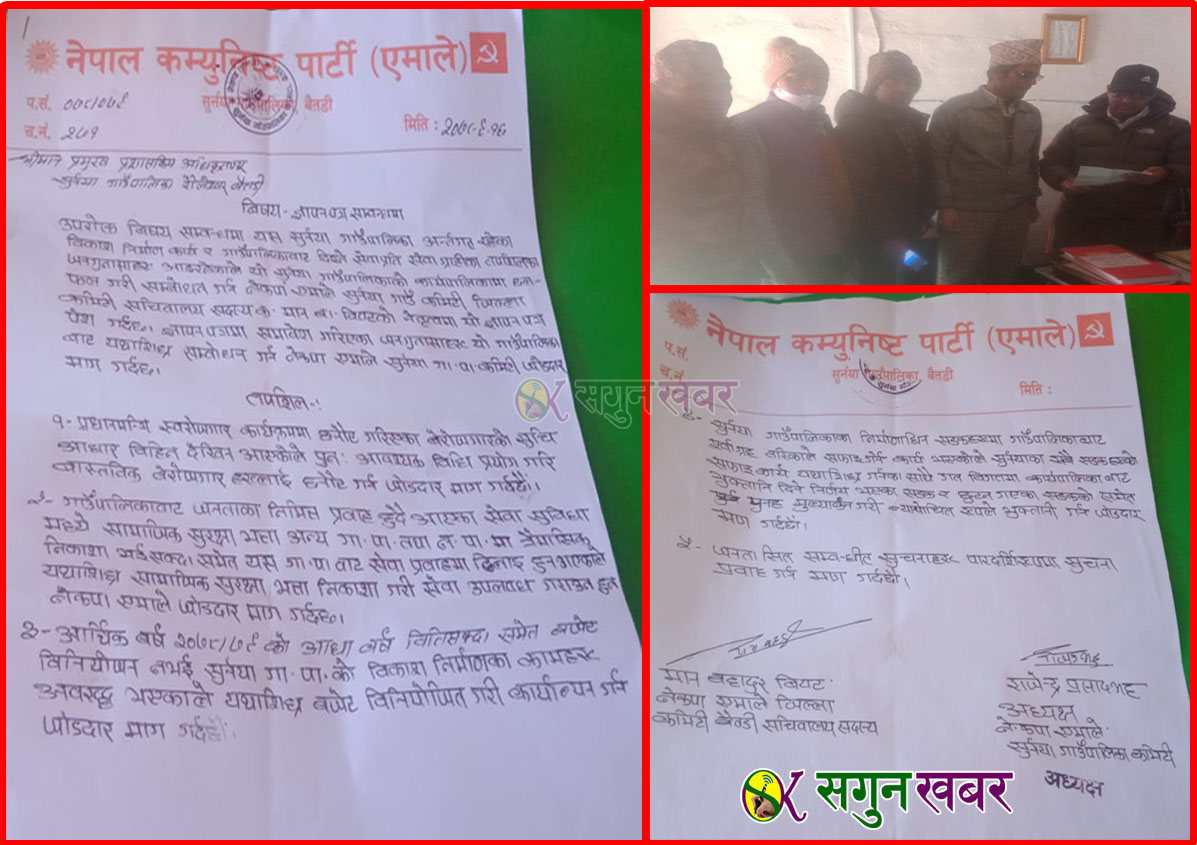 नेपाल कम्युनिष्ट पार्टी (एमाले)
सुर्नया गाउँपालिका, बैतडी
प.सं. ०७८/०७९
च.नं. २७१
मिति : २०७८-९-१९
श्रीमान प्रमुख प्रशासकिय अधिकृतज्यू
सुर्नया गाउँपालिका बैतडी
बिषय - ज्ञापन पत्र सम्बन्धमा
उपरोक्त बिषय सम्बन्धमा यस सुर्नया गाउँपालिका अर्न्तगत रहेका
विकाश निर्माण कार्य र गाउँपालिकाबाट दिइने सेवाप्रति सेवा ग्राहिका तपशिलका
जनगुनासाहरु आइरहेकाले यो सुर्नया गाउँपालिकाको कार्यपालिकामा छल-
फल गरी सम्बोधन गर्न नेकपा एमाले सुर्नया गाउँ कमिटी जिल्ला
कमिटी सचिवालय सदस्य क. मान ब. बिष्टको नेतृत्वमा यो ज्ञापन पत्र
पेश गर्दछौ। ज्ञापन पत्रमा समावेश गरिएका जनगुनासाहरु यो गाउँपालिका
बाट यथाशिघ्र सम्बोधन गर्न नेकपा एमाले सुर्नया गा.पा. कमिटी जोडदार
माग गर्दछ।
तपशिल -:
१- प्रधानमन्त्रि स्वरोजगार कार्यक्रममा छनौट गरिएका बेरोजगारको सुचि
आधार विहित देखिन आएकोले पुनः आवश्यक विधि प्रयोग गरि
वास्तविक बेरोजगार हरुलाई छनौट गर्न जोडदार माग गर्दछौ।
२- गाउँपालिकाबाट जनताका निमित्त प्रवाह हुदै आएका सेवा सुविधा
मध्ये सामाजिक सुरक्षा भत्ता अन्य गा.पा. तथा न.पा. मा त्रैमासिक
निकाशा भई सक्दा समेत यस गा.पा बाट सेवा प्रवाहमा ढिलाइ हुन आएकोले
यथाशिघ्र सामाजिक सुरक्षा भत्ता निकाशा गरी सेवा उपलब्ध गराउन हुन
नेकपा एमाले जोडदार माग गर्दछ।
३- आर्थिक बर्ष २०७८/७९ को आधा बर्ष बितिसक्दा समेत बजेट
विनियोजन नभई सुर्नया गा.पा. को विकाश निर्माणका कामहरु
अवरुद्ध भएकाले यथाशिघ्र बजेट विनियोजित गरी कार्यान्वयन गर्न
जोडदार माग गर्दछौ।
सगुन खबर
नेपाल कम्युनिष्ट पार्टी (एमाले)
सुर्नया गाउँपालिका, बैतडी
प.सं.
च.नं.
मिति :
४- सुर्नया गाउँपालिकाका निर्माणाधिन सडकहरुमा गाउँपालिकाबाट
तरिकाले सफाइ गर्ने कार्य भएकोले सुर्नयाका सबै सडकहरुको
सफाइ कार्य यथाशिघ्र गर्नका साथै गत विगतमा कार्यपालिकाबाट
भुक्तानि दिने निर्णय भएका सडक र छुट्न गएका सडकको समेत
पुनः मुल्यांकन गरी न्यायोचित रुपले भुक्तानी गर्न जोडदार
माग गर्दछौ।
५- जनता सित सम्बन्धीत सुचनाहरु पारदर्शिरुपमा सुचना
प्रवाह गर्न माग गर्दछौ।
मान बहादुर बिष्ट
नेकपा एमाले जिल्ला
कमिटी बैतडी सचिवालय सदस्य
अध्यक्ष
नेकपा एमाले
सुर्नया गाउँपालिका कमिटी
अध्यक्ष
सगुन खबर